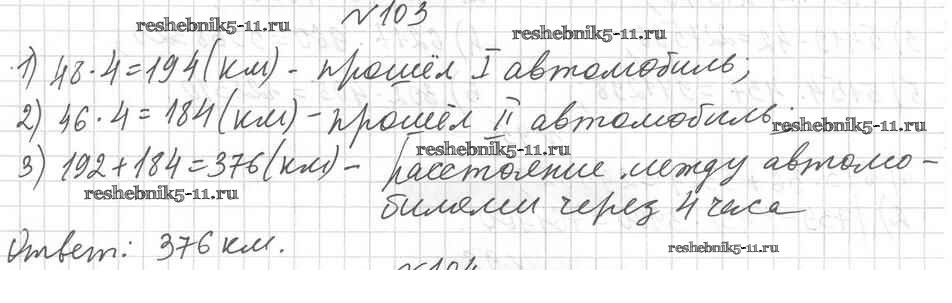 №103
reshebnik5-11.ru reshebnik5-11.ru
1) 48·4=194(км) - прошёл I автомобиль;
2) 46·4=184(км) - прошёл II автомобиль;
reshebnik5-11.ru
reshebnik5-11.ru
3) 192+184=376(км) - Расстояние между автомо-
reshebnik5-11.ru
билями через 4 часа
Ответ: 376 км.
reshebnik5-11.ru
№104